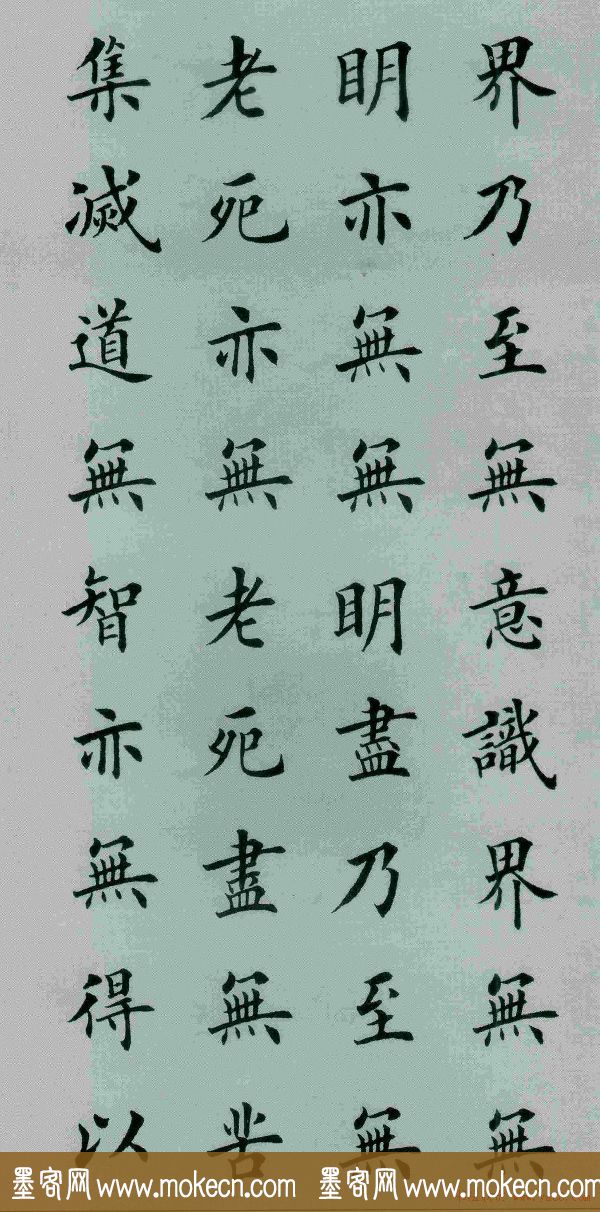 界乃至無意識界無無
明亦無無明盡乃至無
老死亦無老死盡無苦
集滅道無智亦無得以
墨客网 www.mokecn.com 墨客网 www.mokecn.com